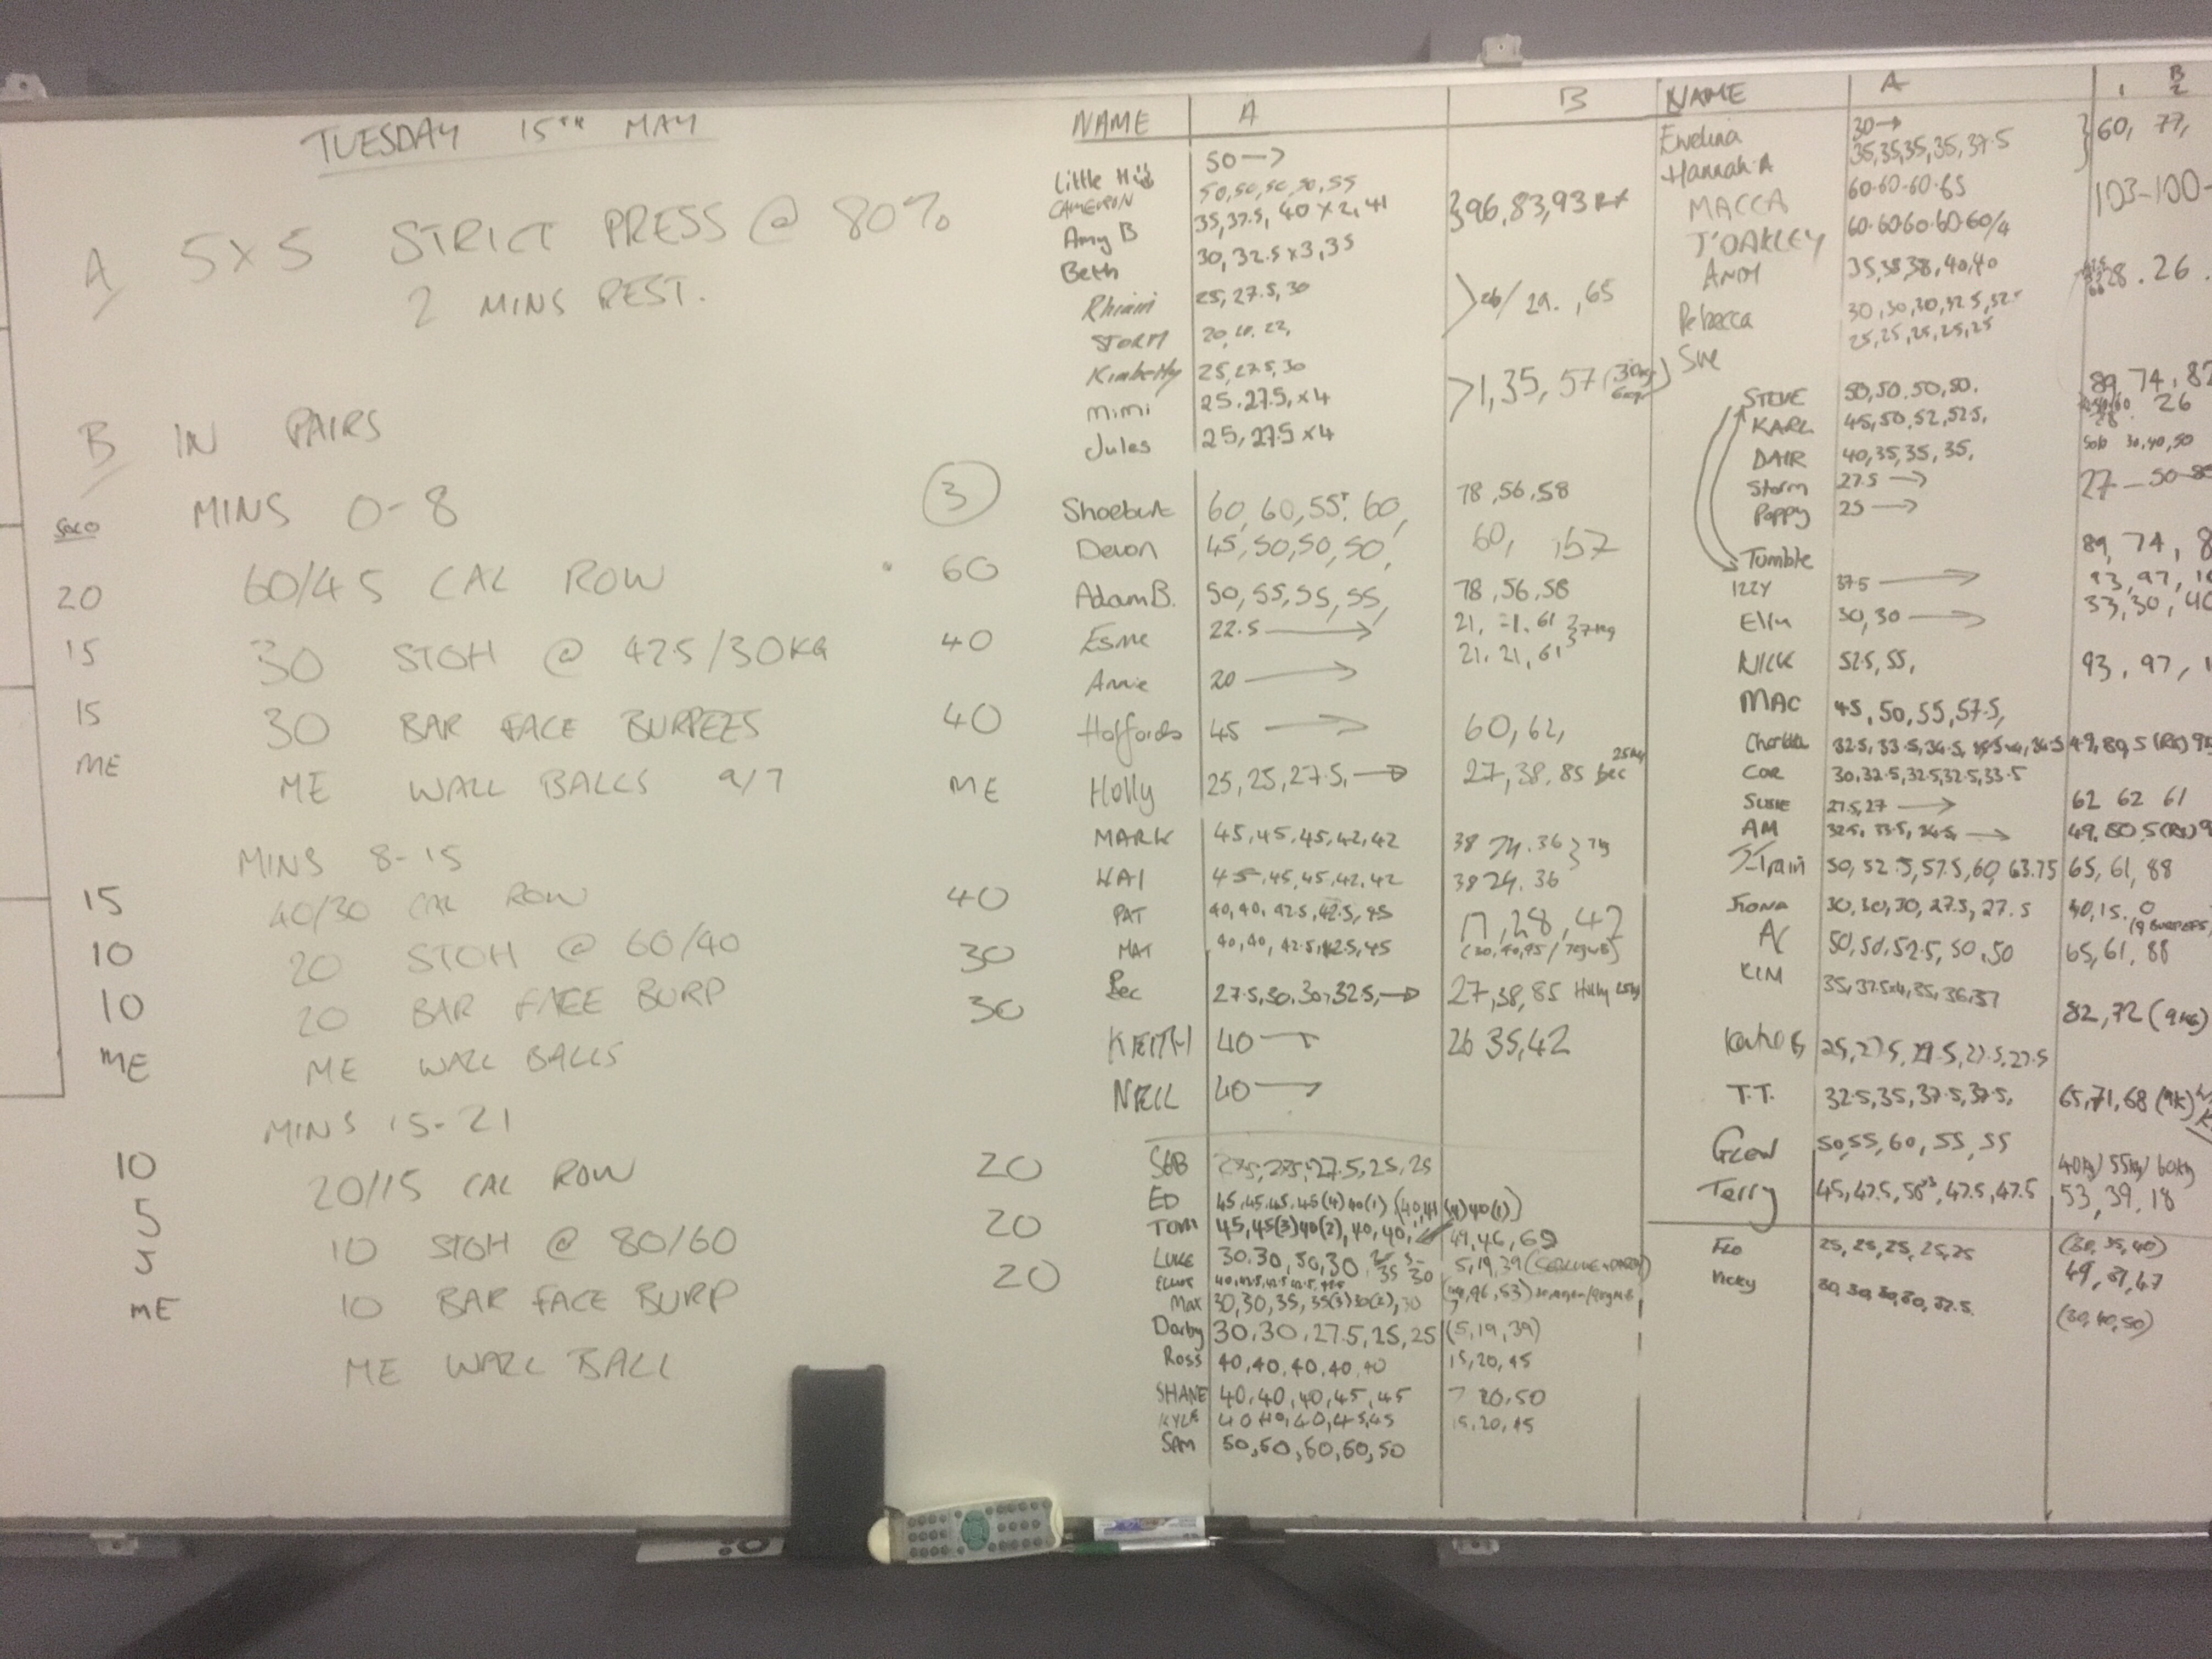 TUESDAY 15TH MAY
A 5x5 STRICT PRESS @ 80%
2 MINS REST.
B IN PAIRS
MINS 0-8
SOLO
3
20 60/45 CAL ROW 60
15 30 STOH @ 42.5/30KG 40
15 30 BAR FACE BURPEES 40
ME ME WALL BALLS 9/7 ME
MINS 8-15
15 40/30 CAL ROW 40
10 20 STOH @ 60/40 30
10 20 BAR FACE BURP 30
ME ME WALL BALLS
MINS 15-21
10 20/15 CAL ROW 20
5 10 STOH @ 80/60 20
5 10 BAR FACE BURP 20
ME ME WALL BALL
NAME A B
Little H 50→
CAMERON 50,50,50,50,55
Amy B 35,37.5, 40x2, 41
}96,83,93 RX
Beth 30, 32.5x3, 35
25, 27.5, 30
>26/ 29. ,65
STORM 20,
Kimberly 25,27.5,30
mimi 25.27.5, x4
>1, 35, 57
Jules 25, 27.5 x4
60, 60, 55, 60, 78,56,58
Devon 45,50,50,50, 60, ,57
Adam B. 50, 55, 55, 55, 78,56,58
Esme 22.5 → 21, 61
Annie 20 → 21. 21, 61
45 → 60, 62,
Holly 25, 25, 27.5, → 27, 38, 85 bec 25kg
MARK 45,45,45,42,42 38 24. 36
KAI 45,45,45,42,42 38 24. 36
PAT 40, 40, 42.5, 42.5, 45 17, 28, 42
MAT 40, 40, 42.5, 42.5, 45
Bec 27.5,30,30,32.5, → 27,38,85 Holly 25kg
KEITH 40 → 26 35,42
NEIL 40 →
27.5, 27.5, 27.5, 25, 25
ED 45,45,45,45(4)40(1)
TOM 45,45(3)40(2),40,40, 49,46,69
LUKE 30.30, 30,30 5,19,39
Max 30,30,35,35(3)30(2),30
Darby 30,30,27.5,25,25 (5,19,39)
Ross 40,40,40,40,40 15,20,45
SHANE 40,40,40,45,45 20,50
KYLE 40 40,40,45,45 15,20,45
SAM 50,50,50,50,50
NAME A B
1 2
Ewelina 30→
Hannah A 35,35,35,35,37.5
}60, 77,
MACCA 60-60-60-65 103-100-
J'OAKLEY 60-60-60-60-60/4
35,38,38,40,40 28.26.
Rebecca 30,30,30,32.5,32.5
Sue 25,25,25,25,25
STEVE 50,50,50,50. 89, 74, 82
KARL 45,50,52,52.5, 26
DAIR 40,35,35,35, Solo 30,40,50
Storm 27.5 → 27-50-
Poppy 25 →
Tumble 89, 74, 8
IZZY 37.5 → 93, 97,
30, 30 → 33, 30, 40
NICK 52.5, 55, 93, 97,
MAC 45,50,55,57.5,
49,80,5 (RX)
30,32.5,32.5,32.5,33.5
SUSIE 27.5,27 → 62 62 61
AM 32.5, 33.5, 34.5, → 49,80,5(RX)
50, 52.5, 57.5, 60, 63.75 65, 61, 88
FIONA 30, 30, 30, 27.5, 27.5 40,15.0 (9 BURPEES)
50, 50, 52.5, 50, 50 65,61,88
KIM 35,37.5x4,35,36,37
82,72 (9KG)
25,27.5,27.5,27.5,27.5
T.T. 32.5,35,37.5,37.5, 65,71,68 (9K)
50,55,60,55,55 40kg/55kg/60kg
Terry 45,47.5,50,47.5,47.5 53,39,18
FLO 25,25,25,25,25 (30,35,40)
Vicky 30,30,30,30,32.5 49, 31,47
(30,40,50)